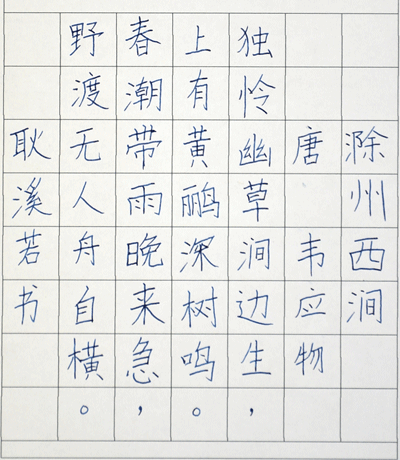 滁州西涧
唐 韦应物
独怜幽草涧边生，
上有黄鹂深树鸣。
春潮带雨晚来急，
野渡无人舟自横。
耿溪若书